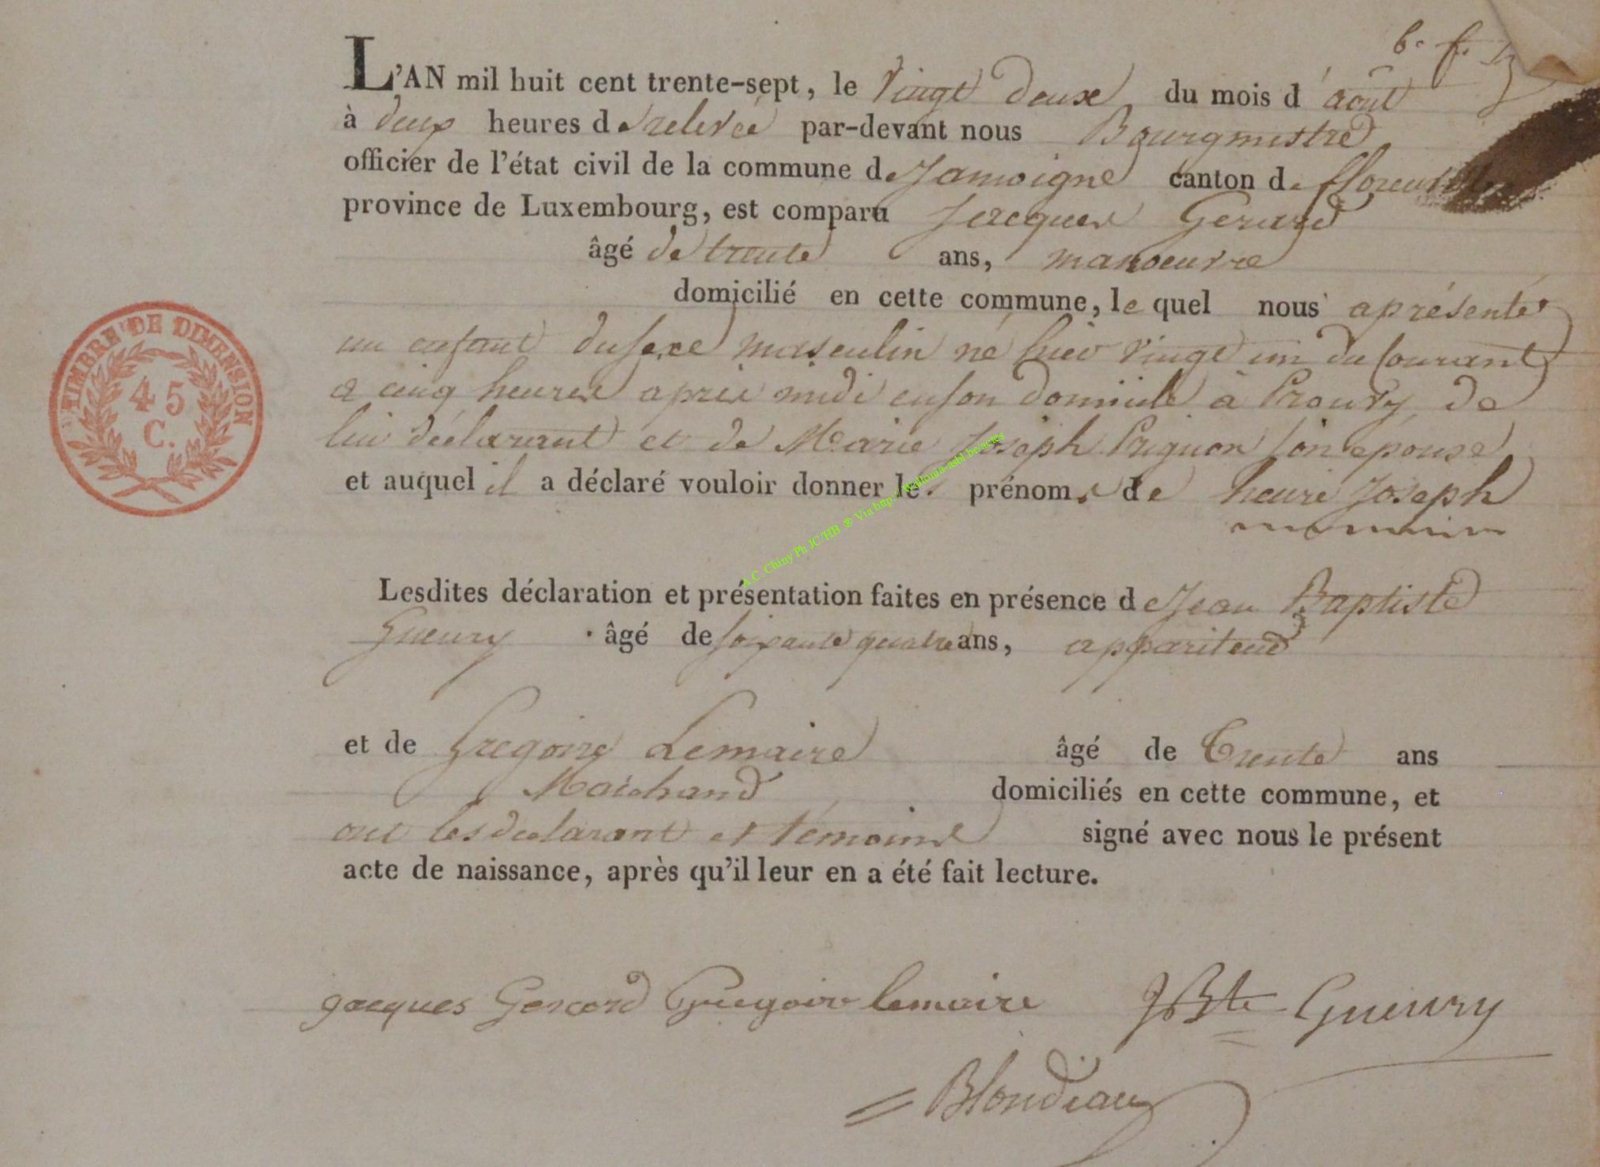 L'AN mil huit cent trente-sept, le vingt deux du mois d'août
à deux heures de relevée par-devant nous Bourgmestre
officier de l'état civil de la commune de Jamoigne canton de florenville
province de Luxembourg, est comparu Jacques Gerard
âgé de trente ans, manoeuvre
domicilié en cette commune, le quel nous a présenté
un enfant du sexe masculin né hier vingt un du courant
a cinq heures après midi en son domicile à Prouvy de
lui déclarant et de Marie Joseph Prignon son épouse
et auquel il a déclaré vouloir donner les prénoms de henri Joseph
Lesdites déclaration et présentation faites en présence de Jean Baptiste
Gueury âgé de soixante quatre ans, appariteur
et de Gregoire Lemaire âgé de trente ans
Marchand domiciliés en cette commune, et
ont les declarant et témoins signé avec nous le présent
acte de naissance, après qu'il leur en a été fait lecture.
jacques Gerard Gregoire lemaire JBte Gueury
Blondiau
TIMBRE DE DIMENSION
45
C.
A.C. Chiny Ph. JC HB ® Via http